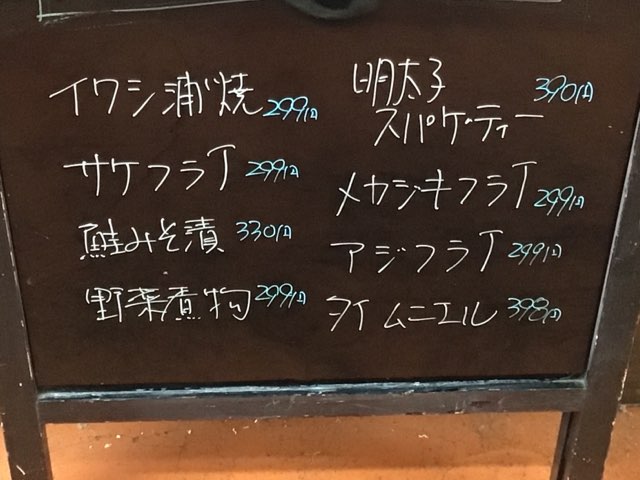 イワシ蒲焼 299円
サケフライ 299円
鮭みそ漬 330円
野菜煮物 299円
明太子
スパゲッティー 390円
メカジキフライ 299円
アジフライ 299円
タイムニエル 398円